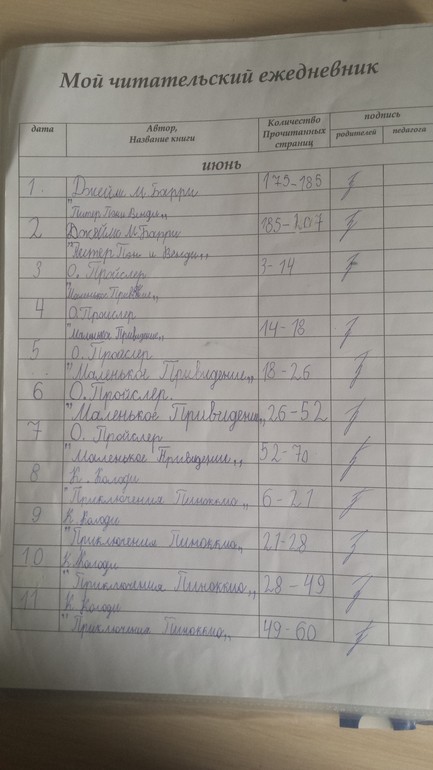 Мой читательский ежедневник
дата
Автор,
Название книги
Количество
Прочитанных
страниц
подпись
родителей
педагога
июнь
1. Джеймс М Барри 175-185
"Питер Пэн и Венди"
2 Джеймс М Барри 185-207
"Питер Пэн и Венди"
3 О. Пройслер 3-14
"Маленькое Привидение"
4 О.Пройслер
"Маленькое Привидение" 14-18
5 О. Пройслер
"Маленькое Привидение" 18-26
6 О. Пройслер.
"Маленькое Привидение" 26-52
7 О. Пройслер
"Маленькое Привидение" 52-70
8 К. Колоди
"Приключения Пиноккио" 6-21
9 К Колоди
"Приключения Пиноккио" 21-28
10 К.Колоди
"Приключения Пиноккио" 28-49
11 К Колоди
"Приключения Пиноккио" 49-60